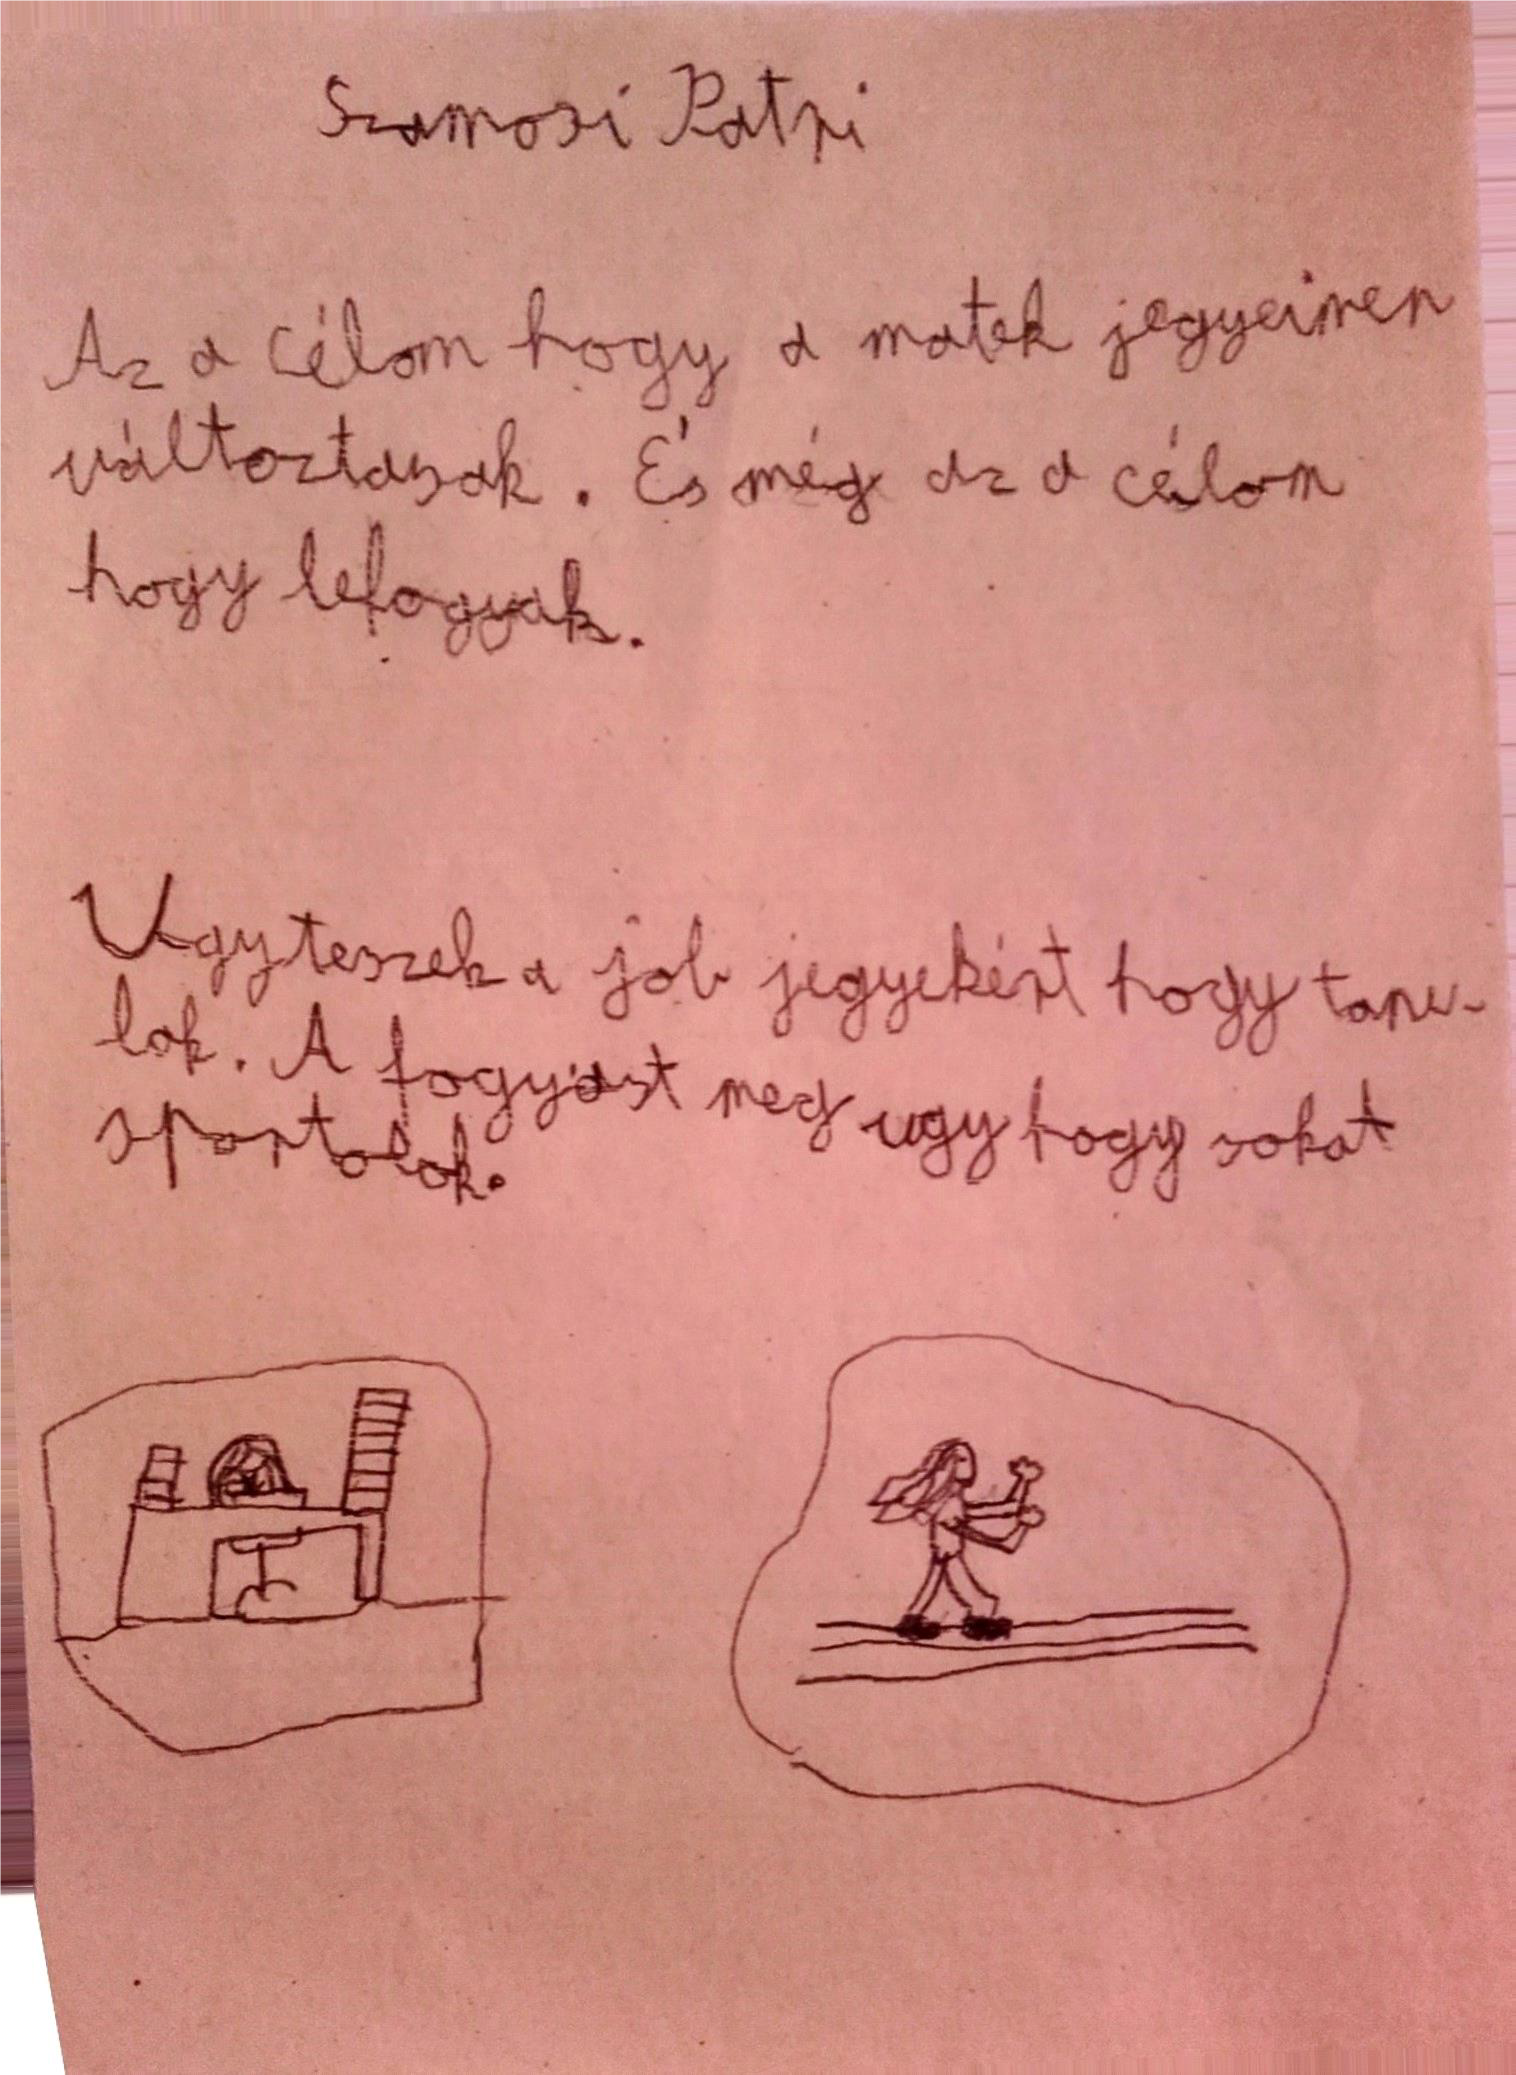 Szamosi Patri
Az a célom hogy a matek jegyeimen
változtasak. És még az a célom
hogy lefogyak.
Ugy teszek a job jegyekért hogy tanu-
lok. A fogyást meg ugy hogy sokat
sportolok.